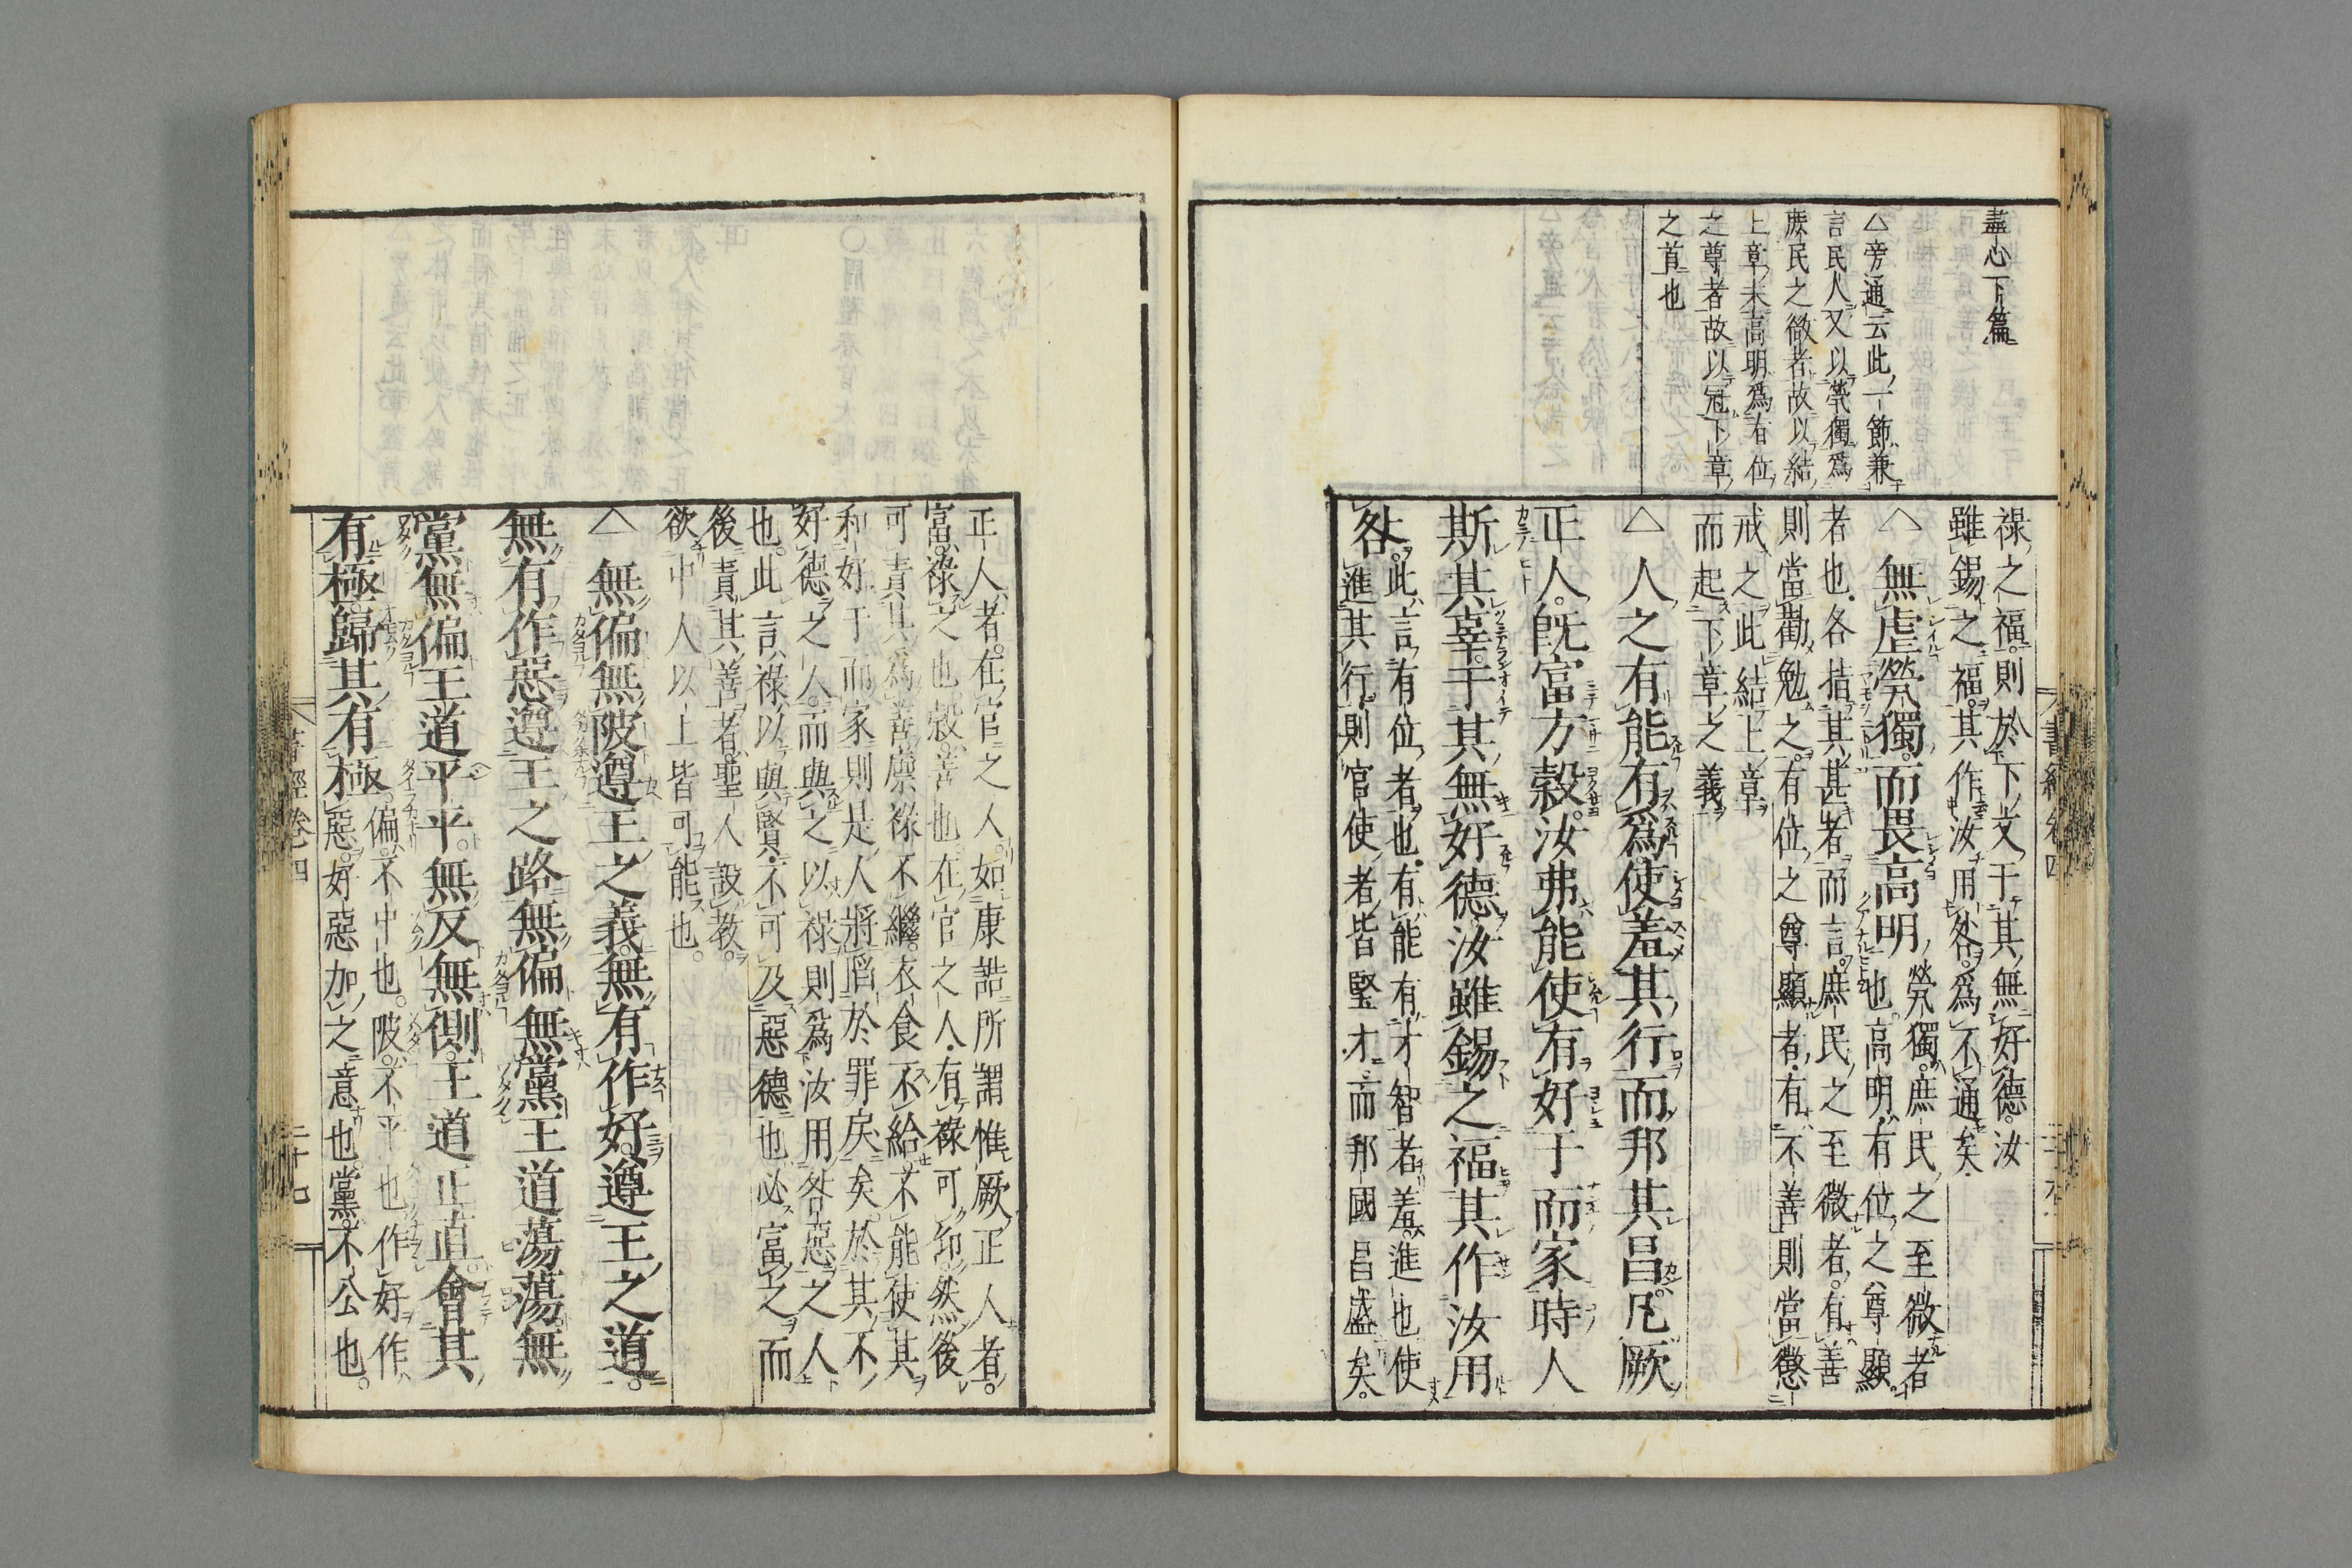 盡心下篇
△旁通云此一節兼
言民人又以煢獨爲
庶民之微者故以結
上章末高明爲有位
之尊者故以冠下章
之首也
祿之福則於下文于其無好德汝
雖錫之福其作汝用咎爲不通矣
△無虐煢獨而畏高明煢獨庶民之至微者
也高明有位之尊顯
者也各指其甚者而言庶民之至微者有善
則當勸勉之有位之尊顯者有不善則當懲
戒之此結上章
而起下章之義
△人之有能有爲使羞其行而邦其昌凡厥
正人既富方穀汝弗能使有好于而家時人
斯其辜于其無好德汝雖錫之福其作汝用
咎此言有位者也有能有才智者羞進也使
進其行則官使者皆堅才而邦國昌盛矣
正人者在官之人如康誥所謂惟厥正人者
富祿之也穀善也在官之人有祿可仰然後
可責其爲善廩祿不繼衣食不給不能使其
和好于而家則是人將陷於罪戾矣於其不
好德之人而與之以祿則爲汝用咎惡之人
也此言祿以與賢不可及惡德也必富之而
後責其善者聖人設教
欲中人以上皆可能也
△無偏無陂遵王之義無有作好遵王之道
無有作惡遵王之路無偏無黨王道蕩蕩無
黨無偏王道平平無反無側王道正直會其
有極歸其有極偏不中也陂不平也作好作
惡好惡加之意也黨不公也
書經卷四